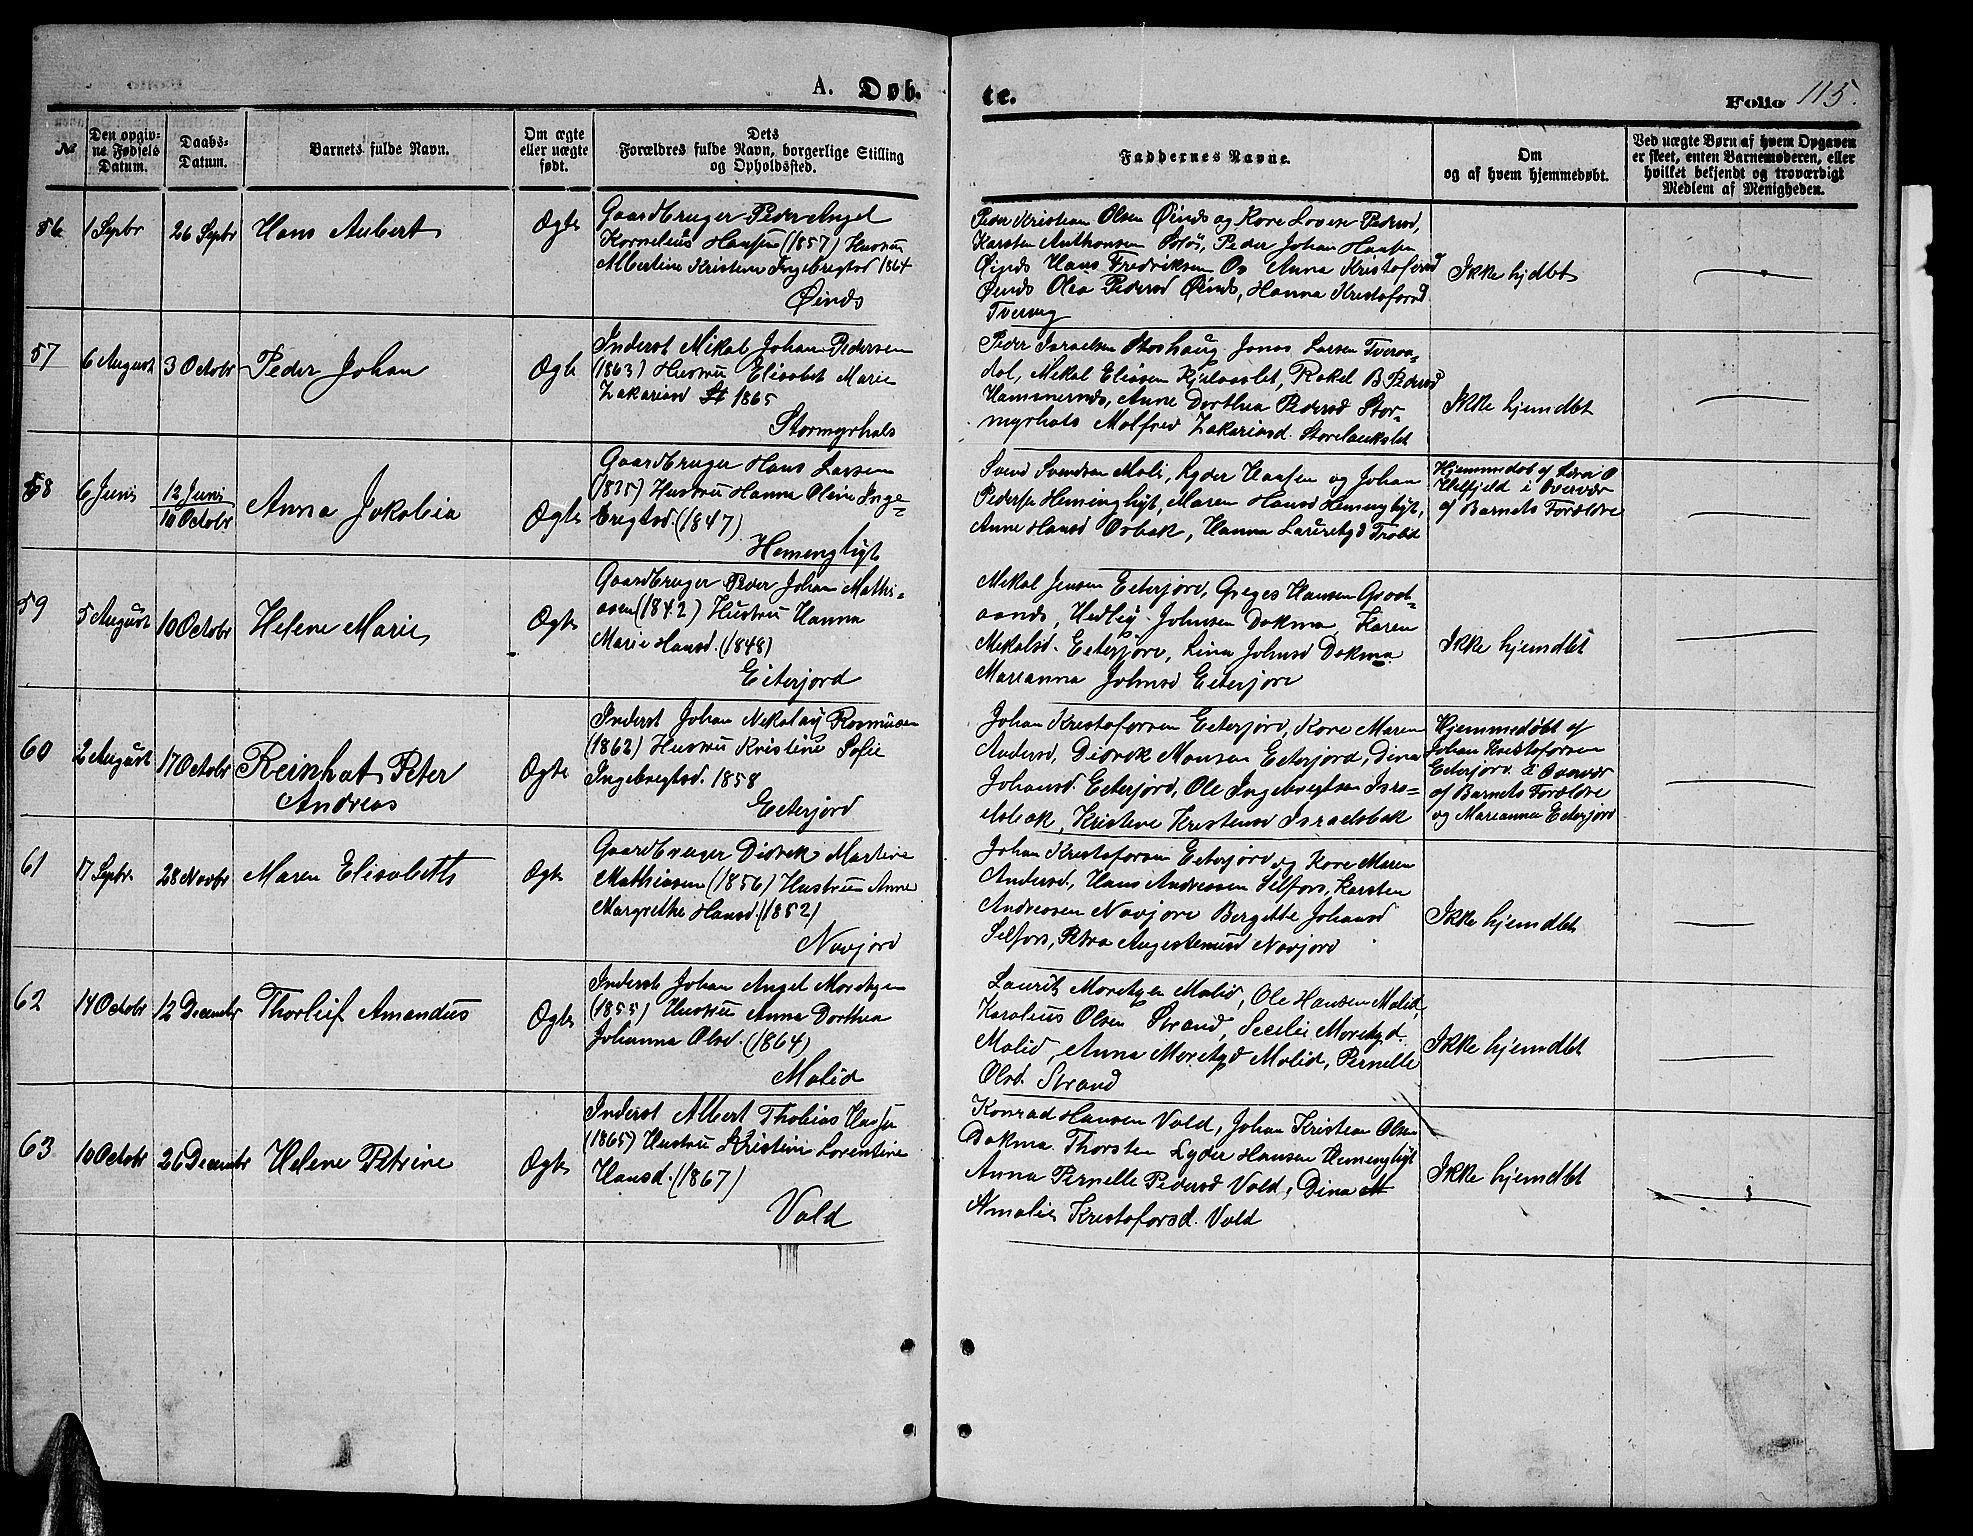 A. Døb-
te.
Folio 115.
№
Den opgiv-
ne Fødsels
Datum.
Daabs-
Datum.
Barnets fulde Navn.
Om ægte
eller uægte
født.
Dets
Forældres fulde Navn, borgerlige Stilling
og Opholdssted.
Faddernes Navne.
Om
og af hvem hjemmedøbt.
Ved uægte Børn af hvem Opgaven
er skeet, enten Barnemoderen, eller
hvilket bekjendt og troværdigt
Medlem af Menigheden.
56
1 Septbr
26 Septbr
Hans Aubert
Ægte
Gaardbruger Peder Angel
Kornelius Hansen (1857) Hustru
Albertine Kristine Ingebregtsd 1864
Øinds
Peder Kristian Olsen Øinds og Kone Lovise Pedersd,
Karsten Anthonsen Peder Johan Hansen
Øinds Hans Fredriksen Os Anna Kristofersd
Øinds Olea Pedersd Øinds, Hanna Kristofersd
Tvervig
Ikke hjdbt
57
6 August
3 Octobr
Peder Johan
Ægte
Inderst Mikal Johan Pedersen
(1863) Hustru Elisabet Marie
Zakariasd 1865
Stormyrhals
Peder Israelsen Stoshaug Jonas Larsen Tveraa-
dal, Mikal Eliasen Rakel B Pedersd
Hammernes, Anne Dorthea Pedersd Stor-
myrhals Malfred Zakariasd. Storelankslet
Ikke hjemdbt
58
6 Juni
12 Juni
10 Octobr
Anna Jakobia
Ægte
Gaardbruger Hans Larsen
(1835) Hustru Hanna Oline Inge-
brigtsd (1847)
Hemingligt
Svend Svendsen Moli, Lyder Hansen og Johan
Pedersen Hemingligt, Maren Hansd Hemingligt,
Anne Hansd Hanna
Hjemmedøb af Lærer O
Hetfjeld i Overvær
af Barnets Forældre
59
5 August
10 Octobr
Helene Marie
Ægte
Gaardbruger Peder Johan Mathi-
asen (1842) Hustru Hanna
Marie Hansd. (1848)
Eiterjord
Mikal Jensen Eeterjord, Greges Hansen Grøt-
aands, Hedley Johnsen Dokma, Karen
Mekalsd. Eeterjord, Lina Johnsd Dokma
Marianna Johnsd Eeterjord
Ikke hjemdbt
60
2 August
17 Octobr
Reinhat Peter
Andreas
Ægte
Inderst Johan Nikolaij Rasmusen
(1862) Hustru Kristine Sofie
Ingebregtsd. 1858
Eeterjord
Johan Kristofersen Eeterjord, Kone Maren
Andersd, Didrik Monsen Eeterjord, Dina
Johansd. Eeterjord, Ole Ingebregtsen Isra-
elsbak, Kristine Kristensd Israelsbak
Hjemmedøbt af
Johan Kristofersen
Eeterjord i Overvær
af Barnets Forældre
og Marianna Eeterjord
61
17 Septbr.
28 Novbr
Maren Elisabeth
Ægte
Gaardbruger Didrik Martine
Mathiasen (1856) Hustru Anne
Margrethe Hansd. (1852)
Navjord
Johan Kristofersen Eeterjord og Kone Maren
Andersd., Hans Andreassen Selfors, Karsten
Andreasen Navjord Bergitte Johansd
Selfors, Petra Augustinusd Navjord
Ikke hjemdbt
62
14 Octobr
12 Decembr
Thorleif Amandus
Ægte
Inderst Johan Angel Moritzen
(1855) Hustru Anna Dorthea
Johanna Olsd. (1864)
Molid
Laurits Moritzen Molid, Ole Hansen Molid,
Karolius Olsen Strand, Secelie Moritzd.
Molid, Anna Moritzd Molid, Pernelle
Olsd. Strand
Ikke hjemdbt
63
10 Octobr
26 Decembr
Helene Petrine
Ægte
Inderst Albert Thobias Hansen
(1865) Hustru Kristine Lorentine
Hansd. (1867)
Vold
Konrad Hansen Vold, Johan Kristian Olsen
Dokma Thorsten Lyder Hansen Hemingligt
Anna Pernelle Pedersd Vold, Dina
Amalie Kristofersd. Vold
Ikke hjemdbt